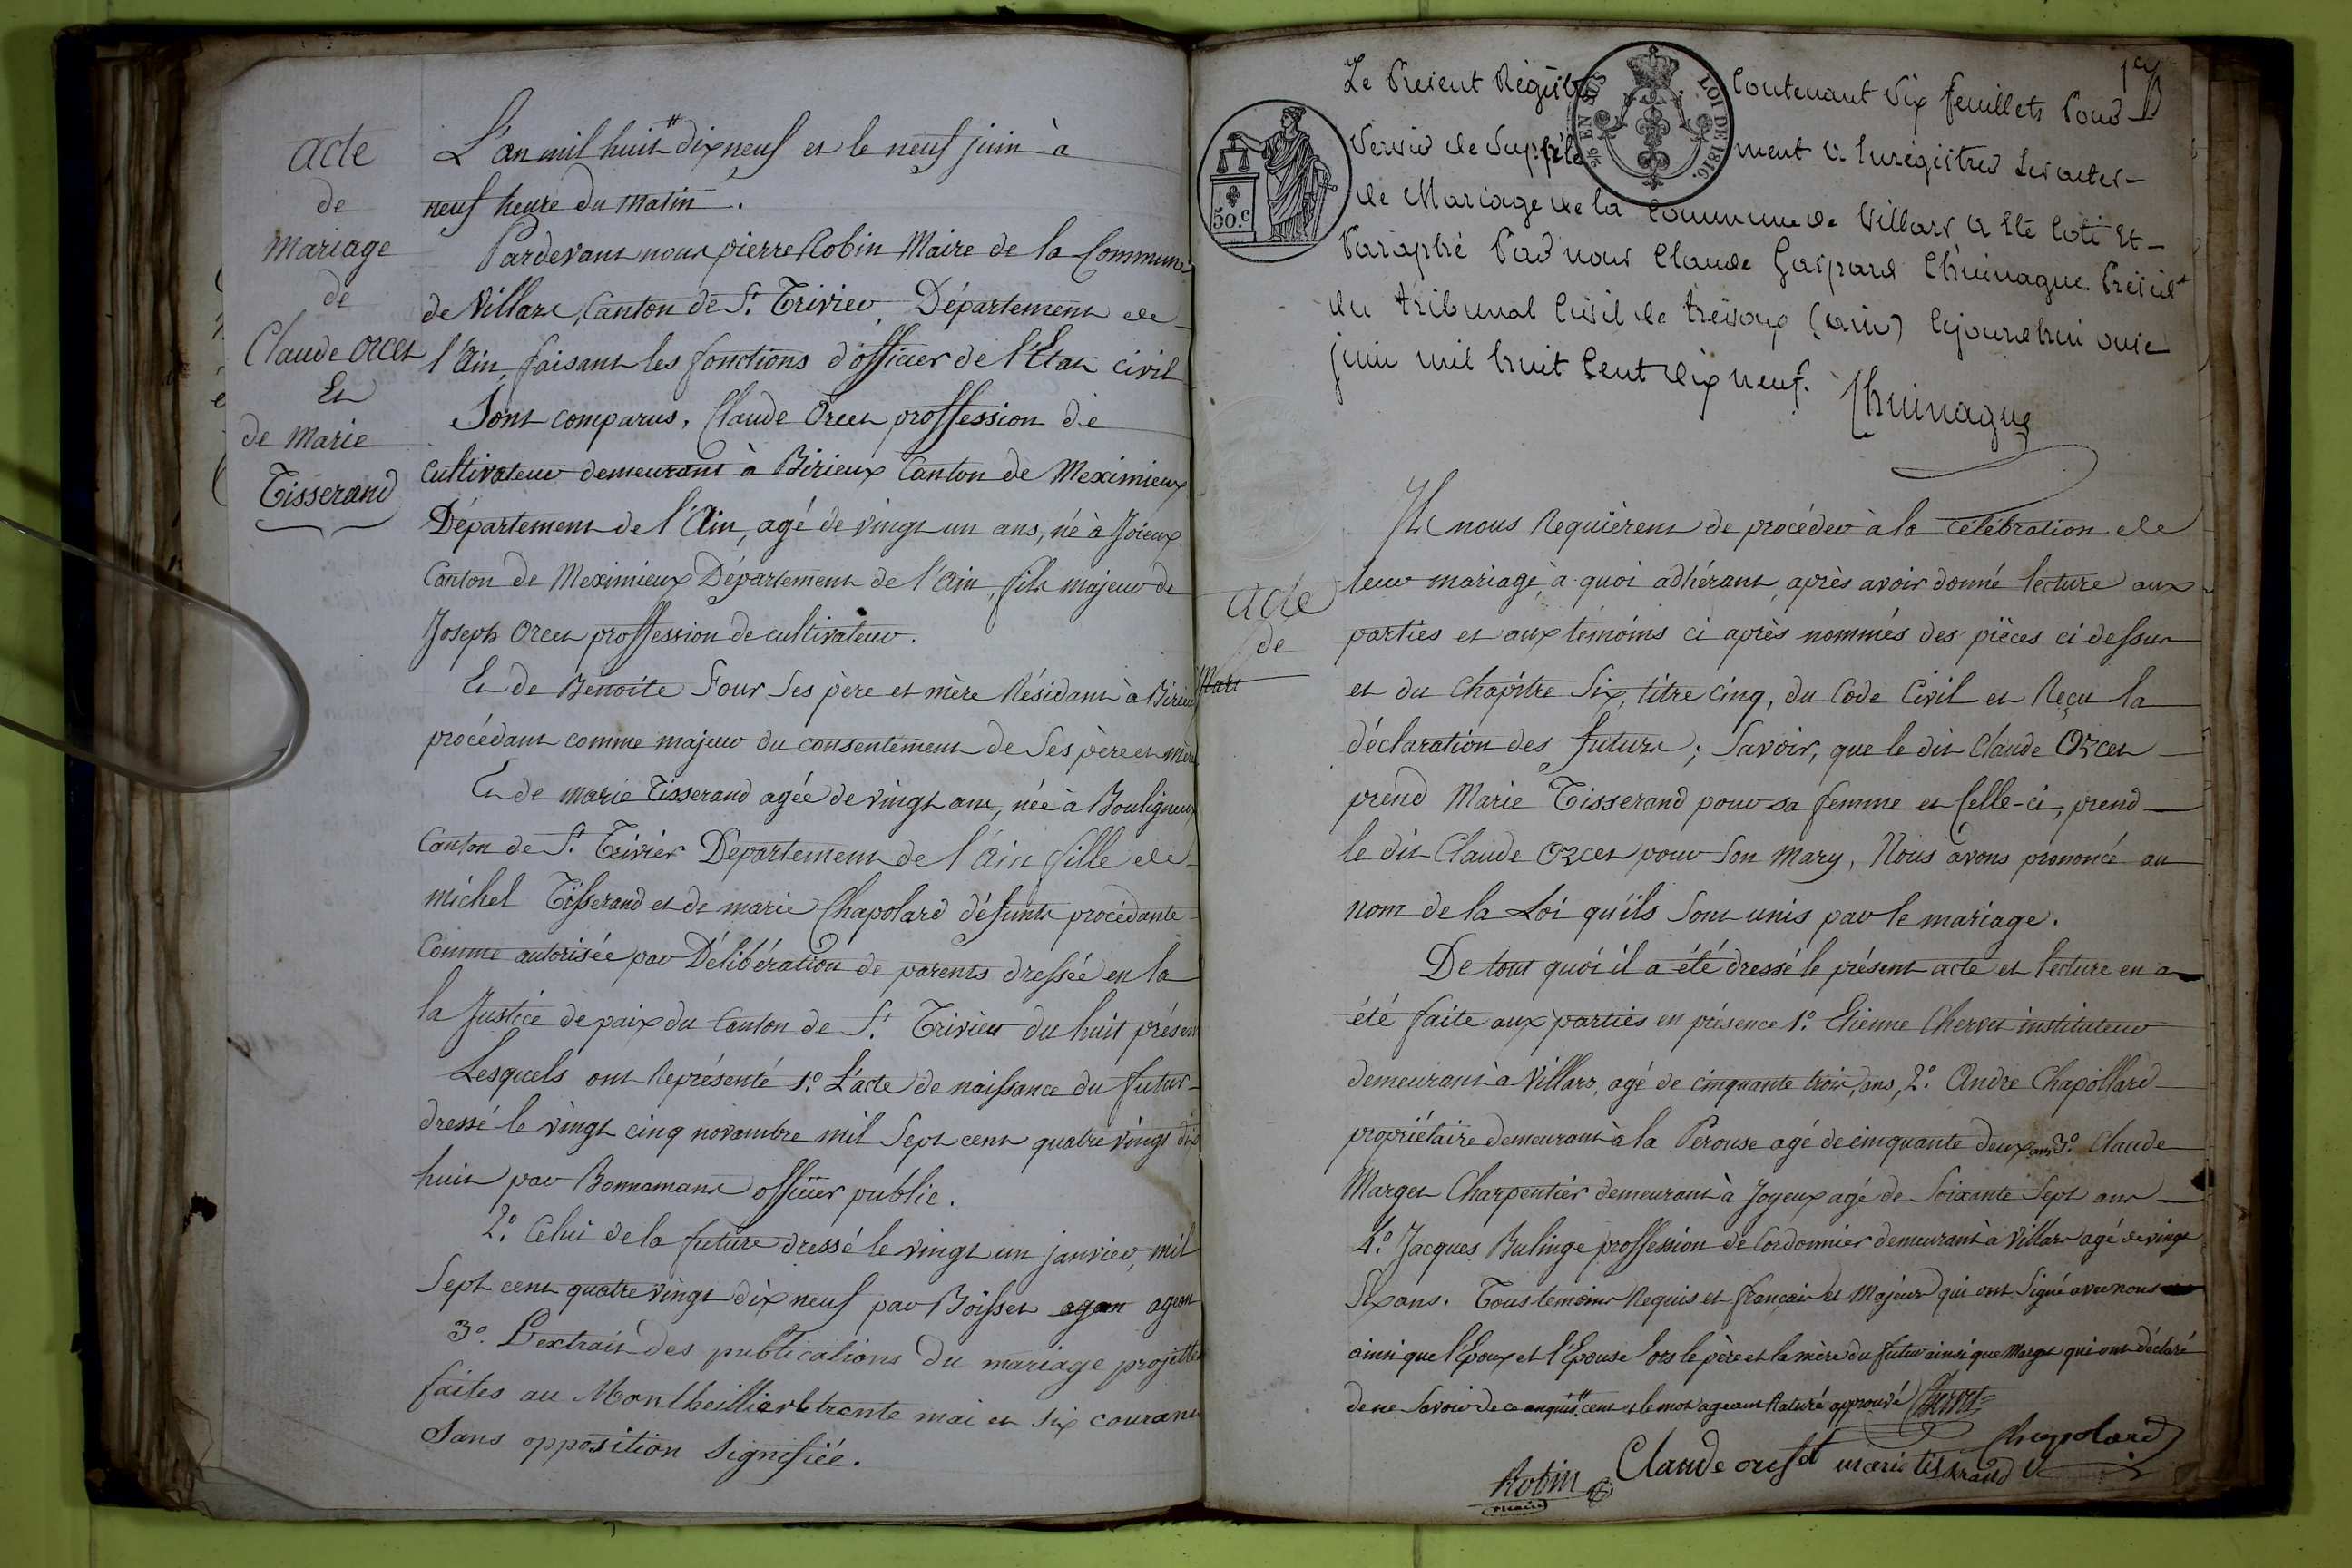 acte
de
mariage
de
Claude Orcet
Et
de Marie
Tisserand
L'an mil huit # dix neuf et le neuf juin à
neuf heure du matin.
Pardevant nous pierre Robin Maire de la Commune
de Villars, Canton de St. Trivier, Département de
l'Ain, faisant les fonctions d'officier de l'Etat civil
Sont comparus, Claude Orcet proffession de
Cultivateur demeurant à Birieux Canton de Meximieux
Département de l'Ain, agé de vingt un ans, né à Joieux
Canton de Meximieux Département de l'Ain, fils majeur de
Joseph Orcet proffession de cultivateur.
Et de Benoite Four ses père et mère Résidant à Birieux
procédant comme majeur du consentement de Ses père et mère
Et de marie Tisserand agée de vingt ans, née à Bouligneux
Canton de St. Trivier Département de l'Ain fille de
michel Tisserand et de marie Chapolard défunts procédante
Comme autorisée par Délibération de parents dressée en la
la Justice de paix du Canton de St. Trivier du huit présent
Lesquels ont Représenté 1.° L'acte de naissance du futur
dressé le vingt cinq novembre mil Sept cent quatre vingt dix
huit par Bonnamant officier public.
2.° Celui de la future dressé le vingt un janvier, mil
Sept cent quatre vingt dix neuf par Boisset agan agent
3.° L'extrait des publications du mariage projetté
faites au Montheillier le trente mai et six courant
Sans opposition Signifiée.
Le Présent Régistre Contenant Six feuillets Pour
Servir de Supplément à Enregistrer les actes
de Mariage de la Commune de Villars a Eté Coté Et
Paraphé Par nous Claude Gaspard Chuinague Présidt
du tribunal Civil de trévoux (ain) Cejourdhui onze
juin mil huit Cent dix neuf.
Chuinague
50.c
EN SUS
LOI DE 1816.
acte
de
Mari
Ils nous Requièrent de procéder à la célébration de
leur mariage, à quoi adhérant, après avoir donné lecture aux
parties et aux témoins ci après nommés des pièces ci dessus
et du Chapitre Six, titre cinq, du Code Civil et Reçu la
déclaration des futurs; Savoir, que le dit Claude Orcet
prend Marie Tisserand pour sa femme et Celle-ci, prend
le dit Claude Orcet pour Son Mary, Nous avons prononcé au
nom de la Loi qu'ils Sont unis par le mariage.
De tout quoi il a été dressé le présent acte et lecture en a
été faite aux parties en présence 1.° Etienne Chervet instituteur
demeurant à Villars, agé de cinquante trois, ans, 2.° Andre Chapollard
propriétaire demeurant à la Perouse agé de cinquante deux ans 3.° Claude
Marget Charpentier demeurant à Joyeux agé de Soixante Sept ans
4.° Jacques Bulinge proffession de Cordonnier demeurant à Villars agé de vingt
Six ans. Tous temoins Requis et français et Majeur qui ont Signé avec nous
ainsi que l'Epoux et l'Epouse lors le père et la mère du futur ainsi que Marget qui ont déclaré
de ne Savoir de ce enquis. # cent et le mot agean Raturé approuvé Chervet
Chapolard
Claude orset marie tisserand
Robin
maire